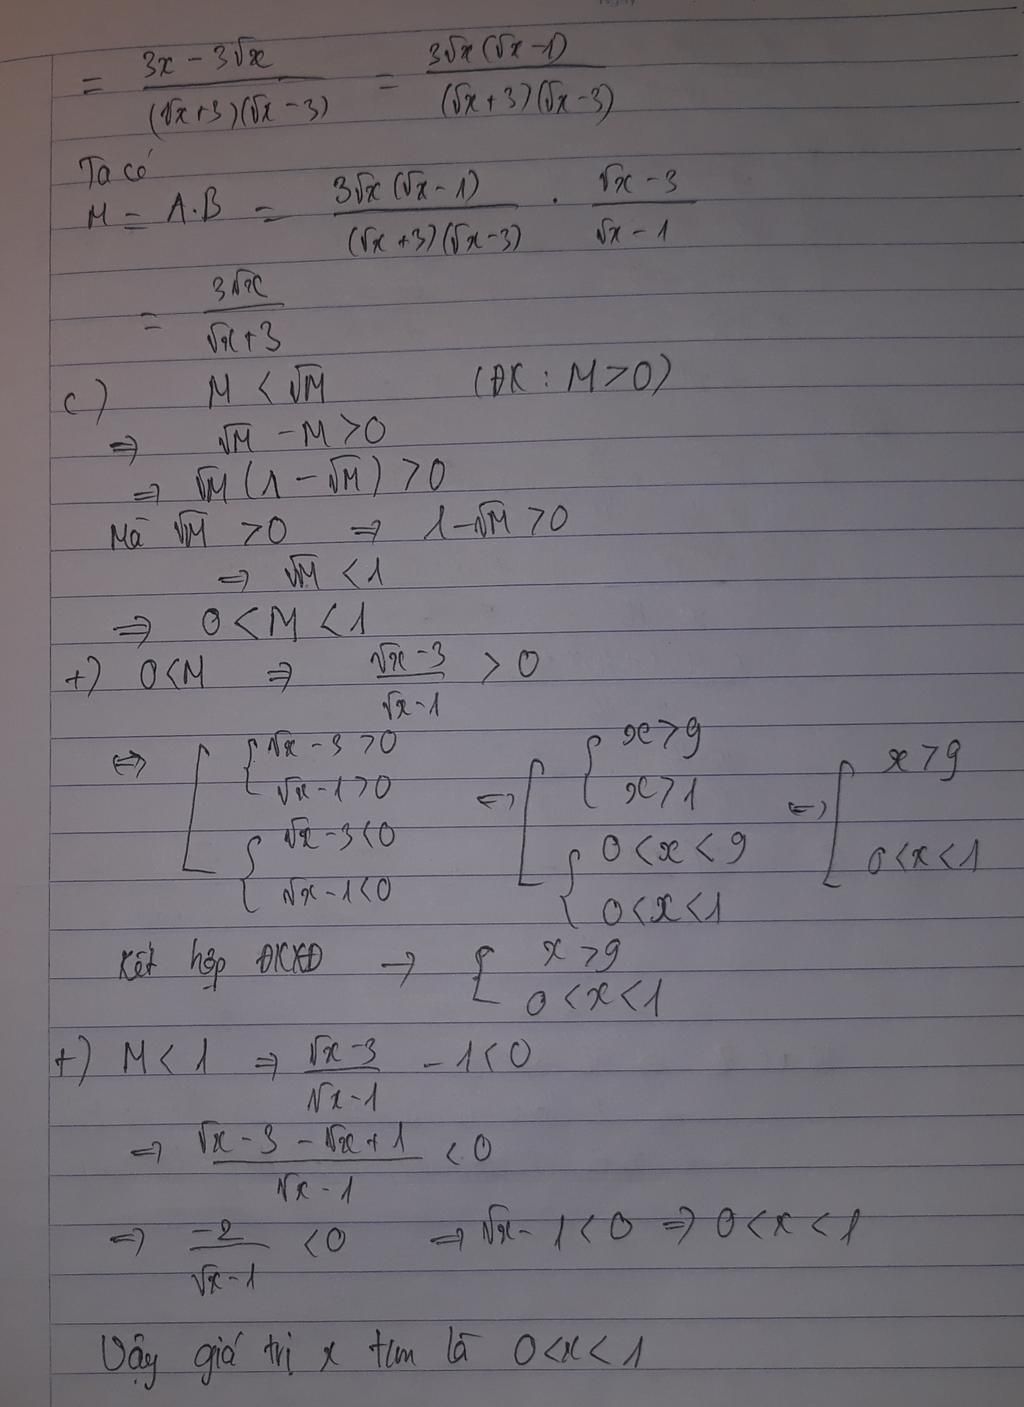 = (3x - 3√x)/((√x+3)(√x-3)) = (3√x(√x-1))/((√x+3)(√x-3))
Ta có
M = A.B = (3√x(√x-1))/((√x+3)(√x-3)) . (√x-3)/(√x-1)
= (3√x)/(√x+3)
c) M < √M (ĐK : M > 0)
⇒ √M - M > 0
⇒ √M (1 - √M) > 0
Mà √M > 0 ⇒ 1 - √M > 0
⇒ √M < 1
⇒ 0 < M < 1
+) 0 < M ⇒ (√x-3)/(√x-1) > 0
⇔ [ { √x - 3 > 0 ; √x - 1 > 0 ; { √x - 3 < 0 ; √x - 1 < 0 ⇔ [ { x > 9 ; x > 1 ; { 0 < x < 9 ; 0 < x < 1 ⇔ [ x > 9 ; 0 < x < 1
Kết hợp ĐKXĐ → { x > 9 ; 0 < x < 1
+) M < 1 ⇒ (√x-3)/(√x-1) - 1 < 0
⇒ (√x - 3 - √x + 1)/(√x - 1) < 0
⇒ (-2)/(√x-1) < 0 ⇒ √x - 1 < 0 ⇒ 0 < x < 1
Vậy giá trị x tìm là 0 < x < 1